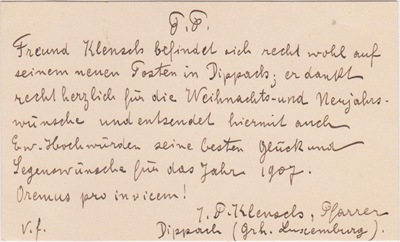 T. T.
Freund Klensch befindet sich recht wohl auf
seinem neuen Posten in Dippach; er dankt
recht herzlich für die Weihnachts- und Neujahrs-
wünsche und entsendet hiermit auch
Ew. Hochwürden seine besten Glück und
Segenswünsche für das Jahr 1907.
Oremus pro invicem!
J. P. Klensch, Pfarrer
V. f. Dippach (Grh. Luxemburg).